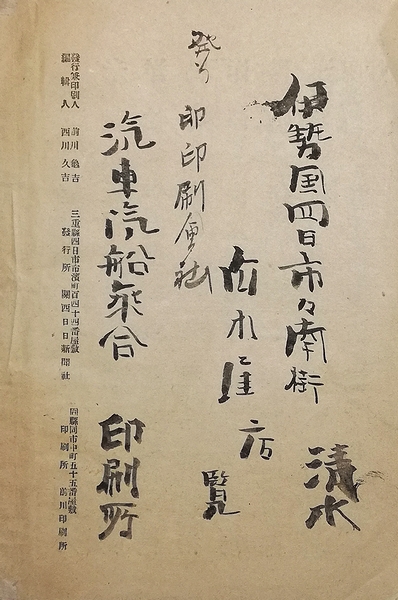 伊勢国四日市々南街
清水
店
覧
発行
印印刷会社
汽車汽船乗合
印刷所
發行兼印刷人 前川亀吉
編輯人 西川久吉
三重縣四日市市濱町百四十四番屋敷
發行所 關西日日新聞社
同縣同市中町五十五番屋敷
印刷所 前川印刷所